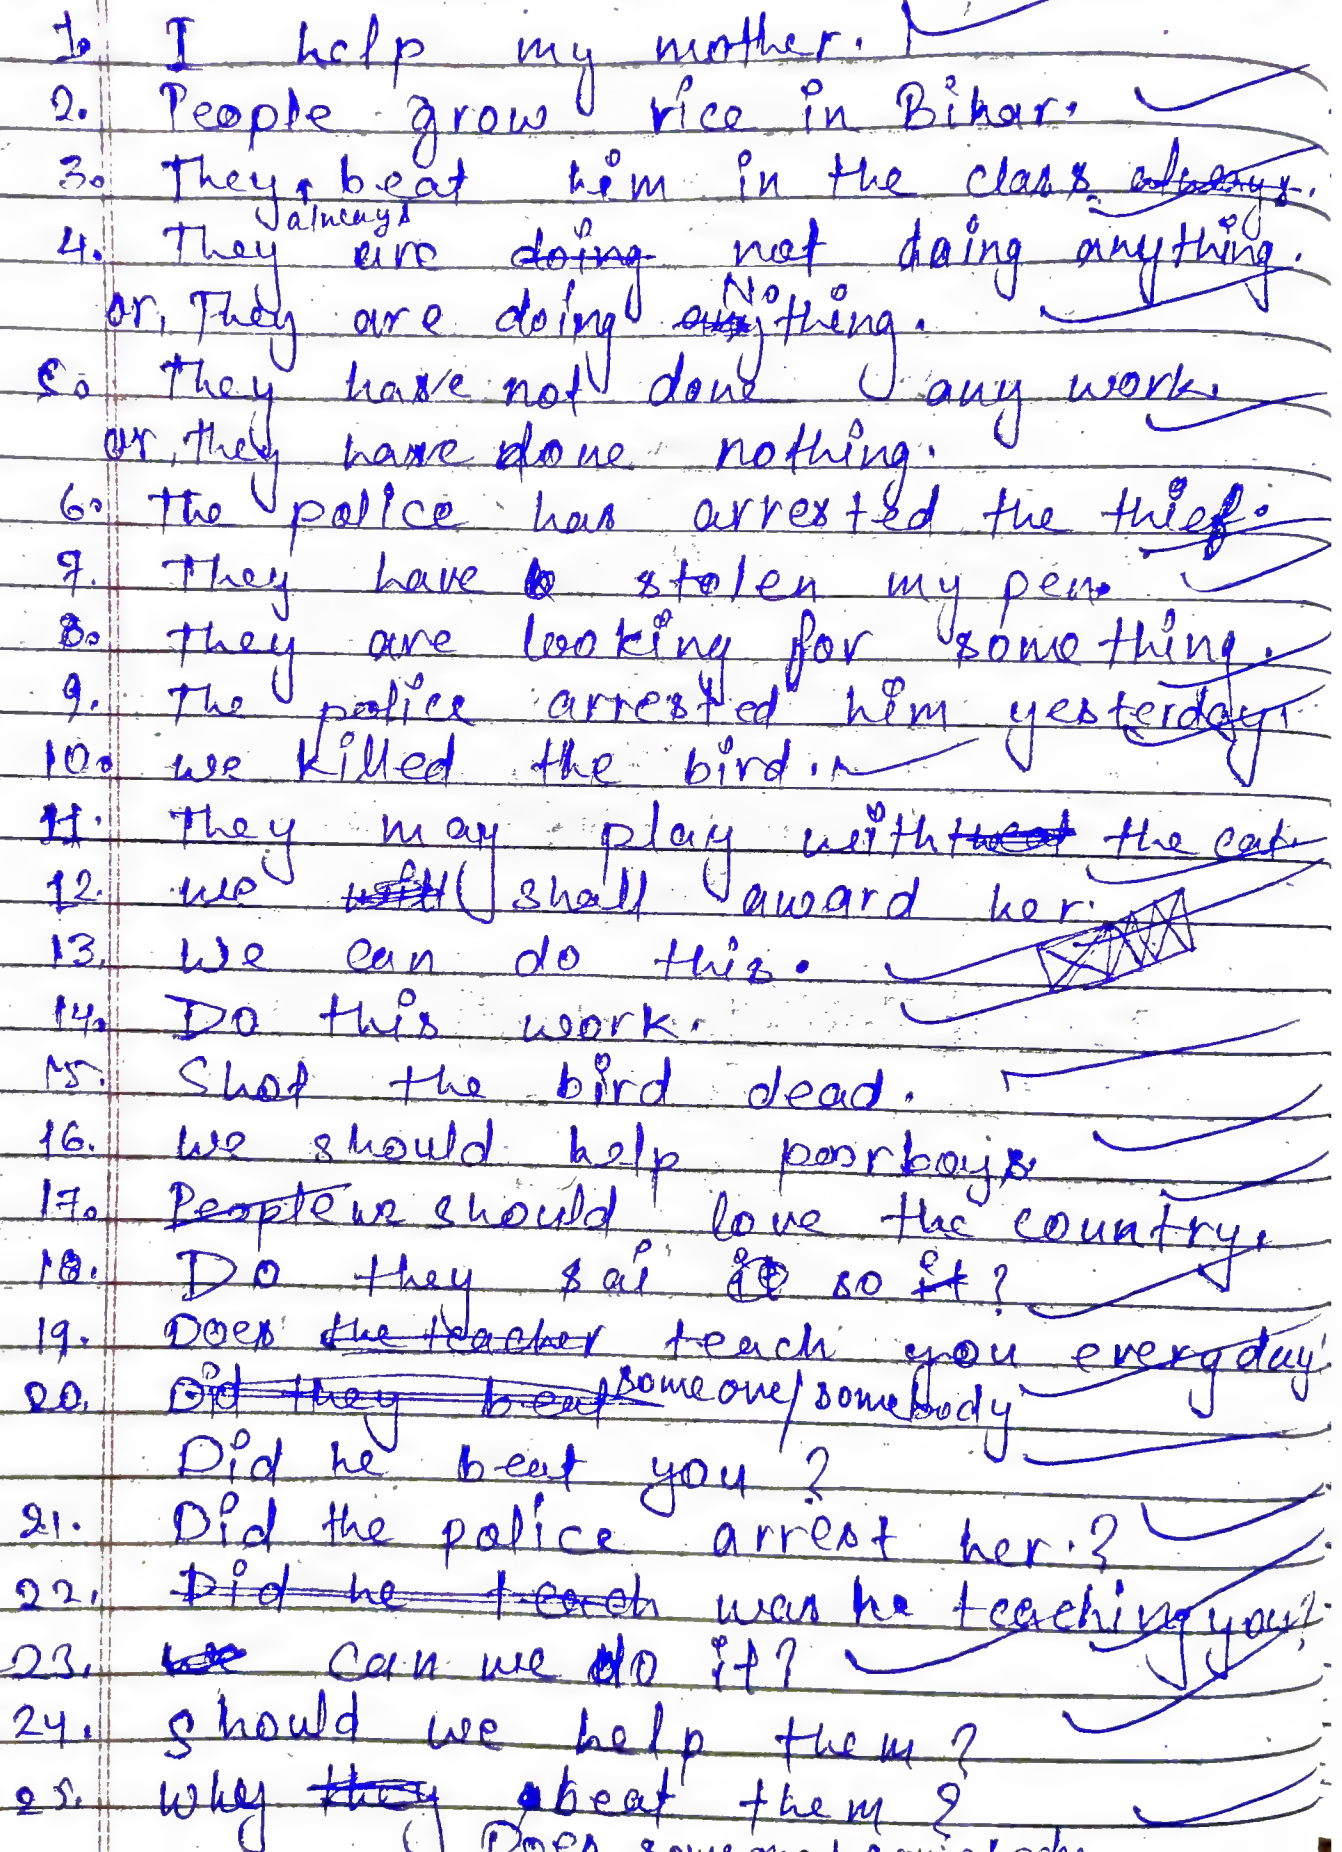 1. I help my mother.
2. People grow rice in Bihar.
3. They beat him in the class always.
always
4. They are doing not doing anything.
or, They are doing Nothing.
5. They have not done any work.
or, they have done nothing.
6. The police has arrested the thief.
7. They have stolen my pen.
8. They are looking for something.
9. The police arrested him yesterday.
10. we killed the bird.
11. They may play with the cat.
12. we will shall award her.
13. We can do this.
14. Do this work.
15. Shot the bird dead.
16. we should help poor boys.
17. People we should love the country.
18. Do they sai so it?
19. Does the teacher teach you everyday
20. Did they beat someone/somebody
Did he beat you?
21. Did the police arrest her.?
22. Did he teach was he teaching you?
23. we can we do it?
24. should we help them?
25. why they beat them?
Does